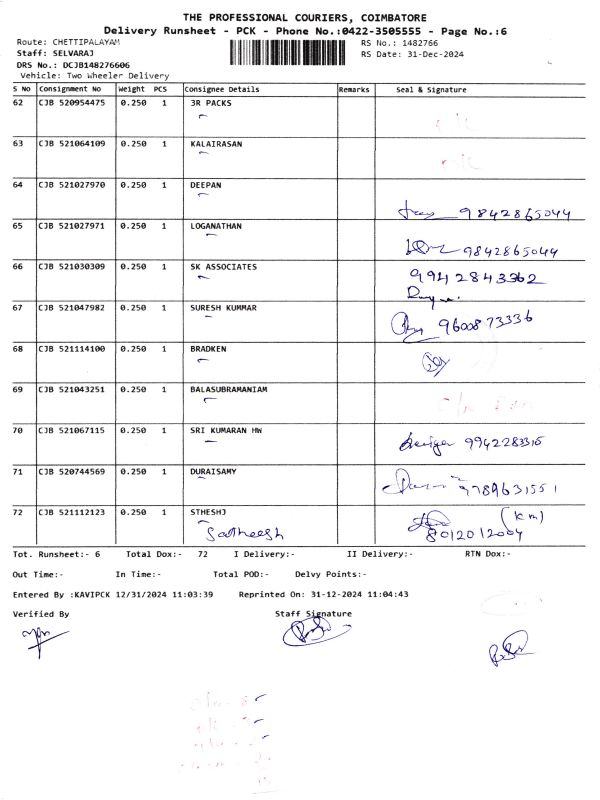 THE PROFESSIONAL COURIERS, COIMBATORE
Delivery Runsheet - PCK - Phone No.:0422-3505555 - Page No.:6
Route: CHETTIPALAYAM RS No.: 1482766
Staff: SELVARAJ RS Date: 31-Dec-2024
DRS No.: DCJB148276606
Vehicle: Two Wheeler Delivery
S No Consignment No Weight PCS Consignee Details Remarks Seal & Signature
62 CJB 520954475 0.250 1 3R PACKS
63 CJB 521064109 0.250 1 KALAIRASAN
64 CJB 521027970 0.250 1 DEEPAN 9842865044
65 CJB 521027971 0.250 1 LOGANATHAN 9842865044
66 CJB 521030309 0.250 1 SK ASSOCIATES 9942843362
67 CJB 521047982 0.250 1 SURESH KUMMAR 9600873336
68 CJB 521114100 0.250 1 BRADKEN
69 CJB 521043251 0.250 1 BALASUBRAMANIAM
70 CJB 521067115 0.250 1 SRI KUMARAN HW 9942283315
71 CJB 520744569 0.250 1 DURAISAMY 9789631551
72 CJB 521112123 0.250 1 STHESHJ (km)
Satheesh 8012012004
Tot. Runsheet:- 6 Total Dox:- 72 I Delivery:- II Delivery:- RTN Dox:-
Out Time:- In Time:- Total POD:- Delvy Points:-
Entered By :KAVIPCK 12/31/2024 11:03:39 Reprinted On: 31-12-2024 11:04:43
Verified By Staff Signature